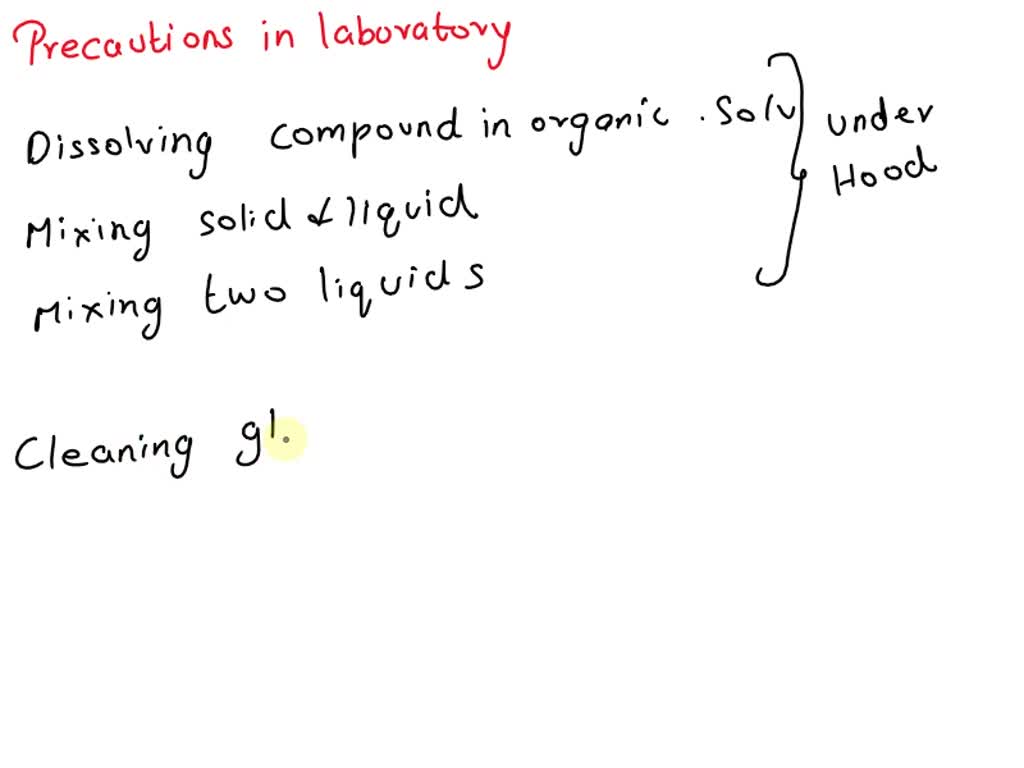 Precautions in laboratory
Dissolving compound in organic . Solv
Mixing solid & liquid
Mixing two liquids
under
Hood
Cleaning gl